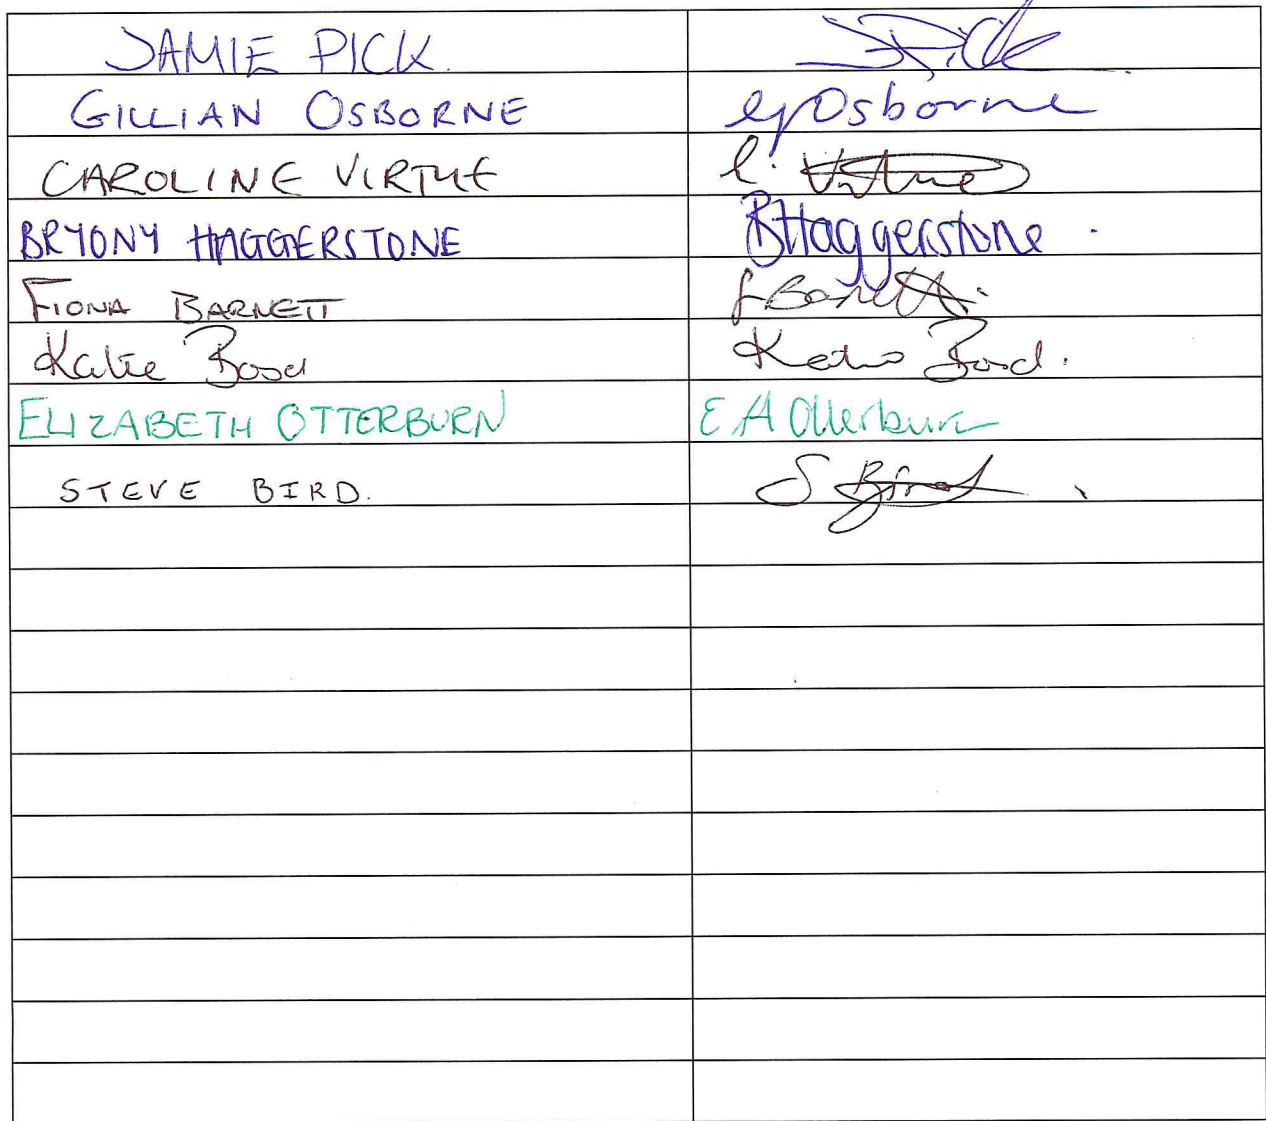 JAMIE PICK. JPick
GILLIAN OSBORNE GJOsborne
CAROLINE VIRTUE C. Virtue
BRYONY HAGGERSTONE BHaggerstone.
FIONA BARNETT FBarnett.
Katie
ELIZABETH OTTERBURN E A Otterburn
STEVE BIRD. S Bird